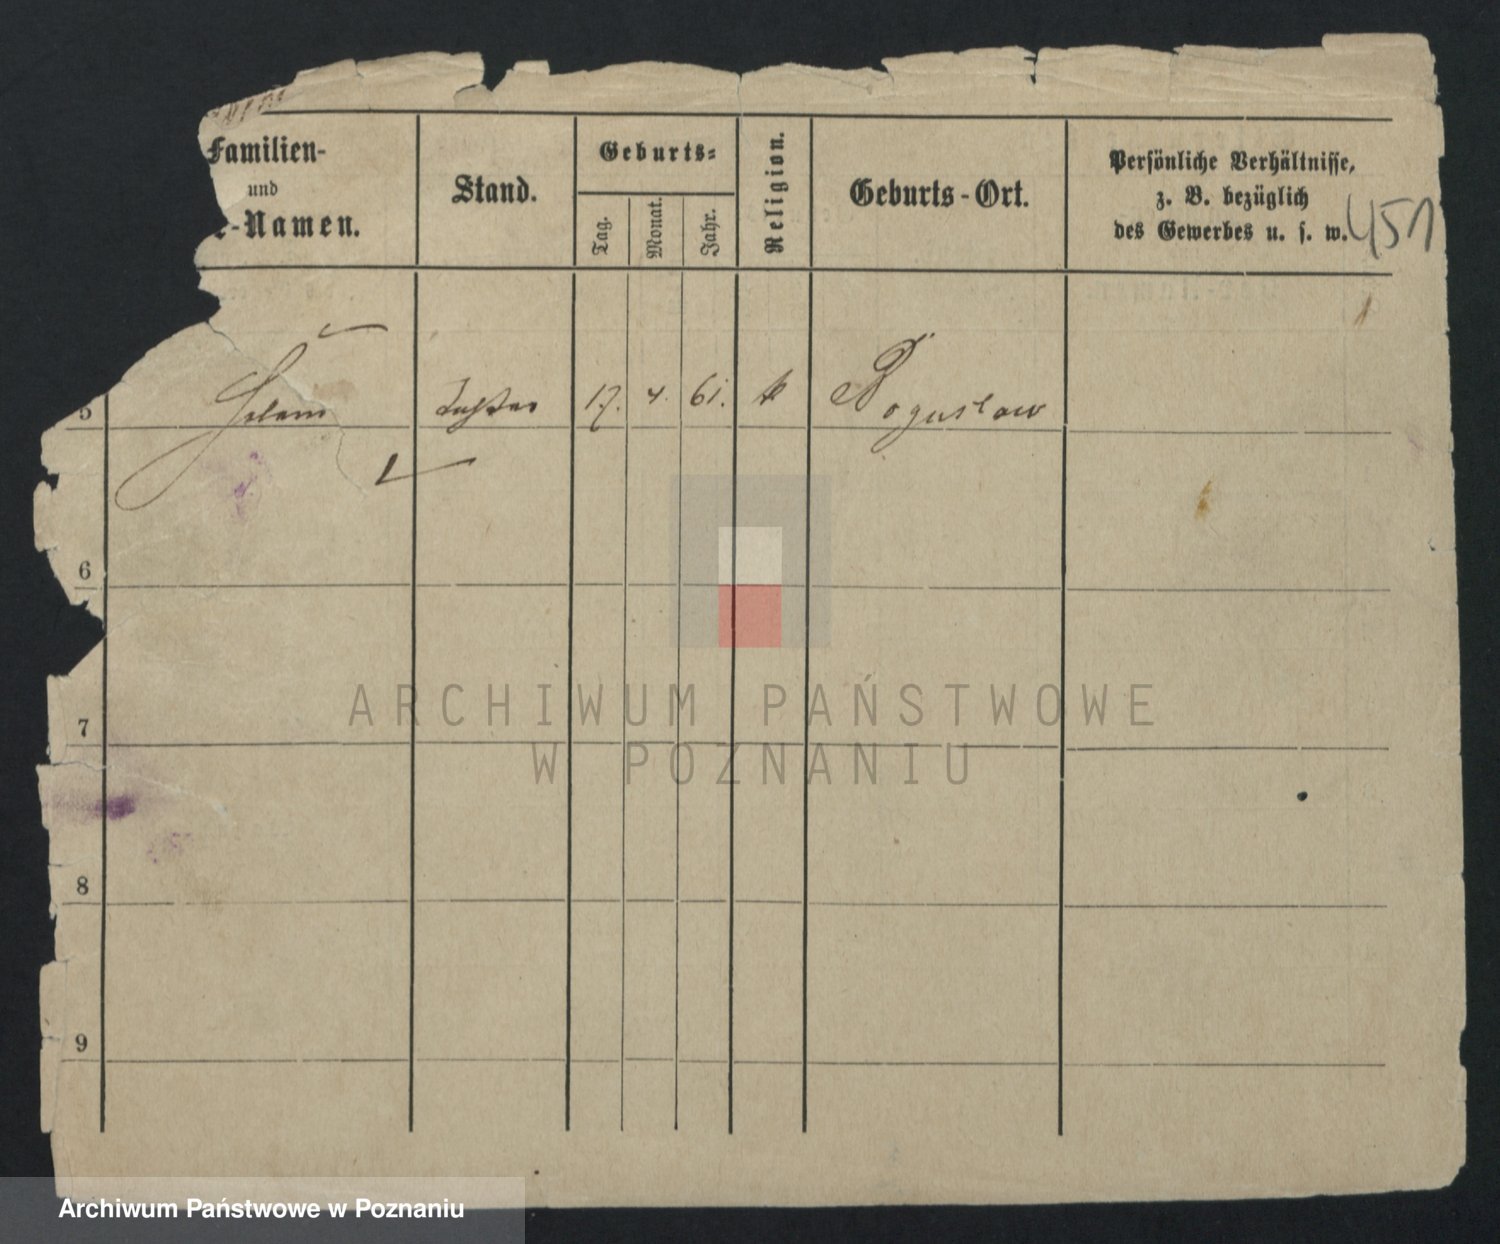 Familien-
und
-Namen.
Stand.
Geburts-
Tag.
Monat.
Jahr.
Religion.
Geburts-Ort.
Persönliche Verhältnisse,
z. B. bezüglich
des Gewerbes u. s. w.
451
5 Tochter 17. 4. 61. k Boguslaw
6
7
8
9
ARCHIWUM PAŃSTWOWE
W POZNANIU
Archiwum Państwowe w Poznaniu